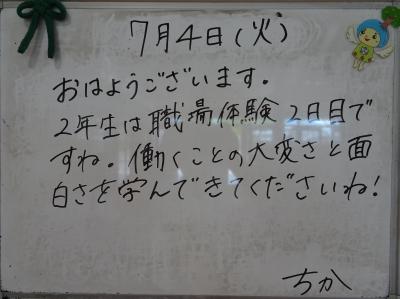 7月4日(火)
おはようございます。
2年生は職場体験2日目で
すね。働くことの大変さと面
白さを学んできてくださいね!
ちか